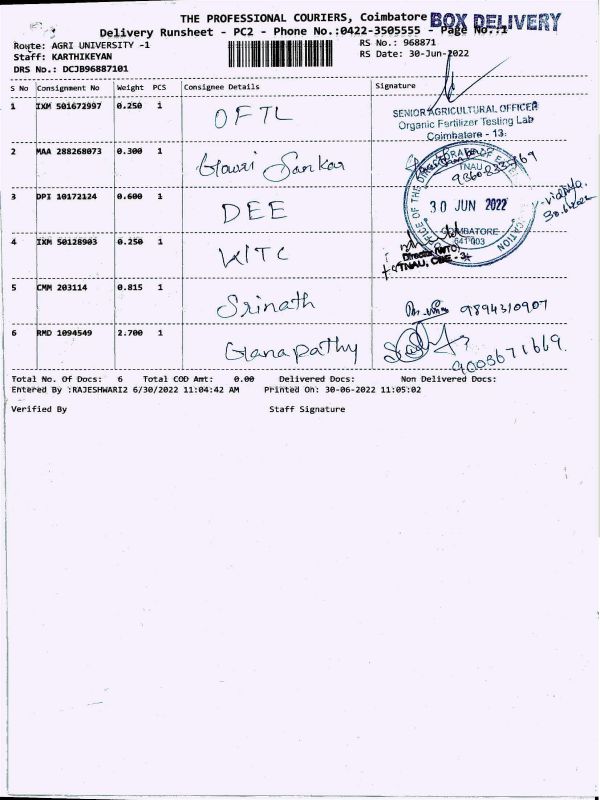 THE PROFESSIONAL COURIERS, Coimbatore BOX DELIVERY
Delivery Runsheet - PC2 - Phone No.:0422-3505555 - Page No.:1
Route: AGRI UNIVERSITY -1 RS No.: 968871
Staff: KARTHIKEYAN RS Date: 30-Jun-2022
DRS No.: DCJB96887101
S No Consignment No Weight PCS Consignee Details Signature
1 IXM 501672997 0.250 1 OFTL
SENIOR AGRICULTURAL OFFICER
Organic Fertilizer Testing Lab
Coimbatore - 13.
2 MAA 288268073 0.300 1 Gowri Sankar
TNAU
3 DPI 10172124 0.600 1 DEE
30 JUN 2022
30.6.2022
COIMBATORE
641 003
4 IXM 50128903 0.250 1 WTC
Director (WTC)
TNAU, CBE - 3
5 CMM 203114 0.815 1 Srinath 9894310907
6 RMD 1094549 2.700 1 Ganapathy 9003671669
Total No. Of Docs: 6 Total COD Amt: 0.00 Delivered Docs: Non Delivered Docs:
Entered By :RAJESHWARI2 6/30/2022 11:04:42 AM Printed On: 30-06-2022 11:05:02
Verified By Staff Signature